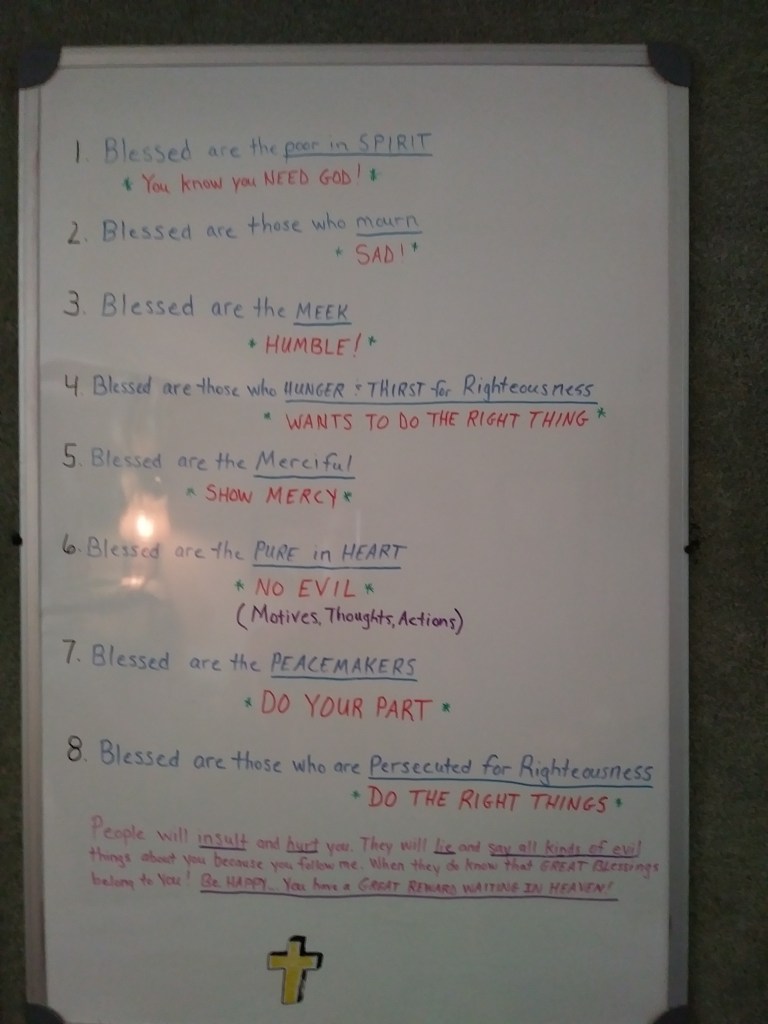 1. Blessed are the poor in SPIRIT
* You know you NEED GOD! *
2. Blessed are those who mourn
* SAD! *
3. Blessed are the MEEK
* HUMBLE! *
4. Blessed are those who HUNGER & THIRST for Righteousness
* WANTS TO DO THE RIGHT THING *
5. Blessed are the Merciful
* SHOW MERCY *
6. Blessed are the PURE in HEART
* NO EVIL *
(Motives, Thoughts, Actions)
7. Blessed are the PEACEMAKERS
* DO YOUR PART *
8. Blessed are those who are Persecuted for Righteousness
* DO THE RIGHT THINGS *
People will insult and hurt you. They will lie and say all kinds of evil
things about you because you follow me. When they do know that GREAT Blessings
belong to You! Be HAPPY... You have a GREAT REWARD WAITING IN HEAVEN!